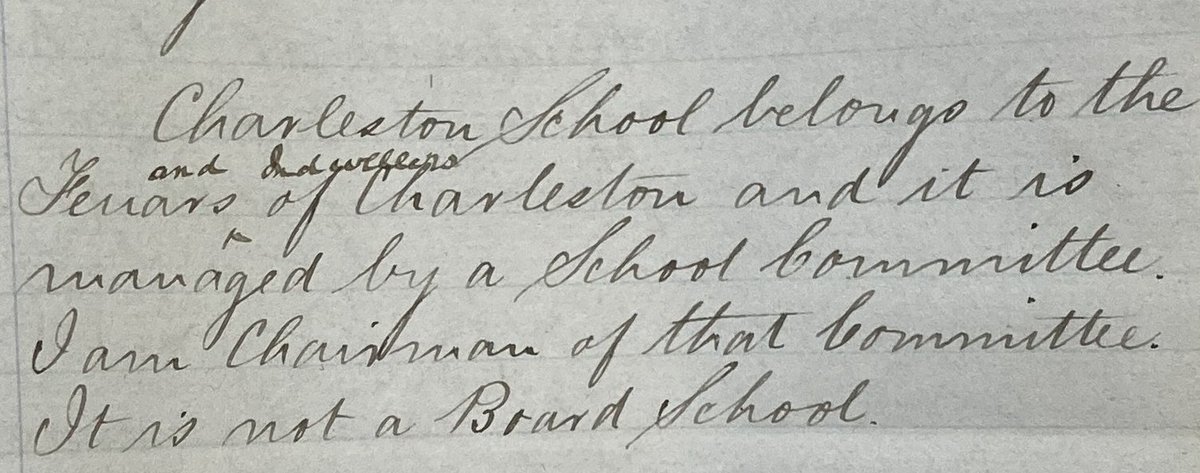 Charleston School belongs to the
and Indwellers
Feuars of Charleston and it is
managed by a School Committee.
I am Chairman of that Committee.
It is not a Board School.